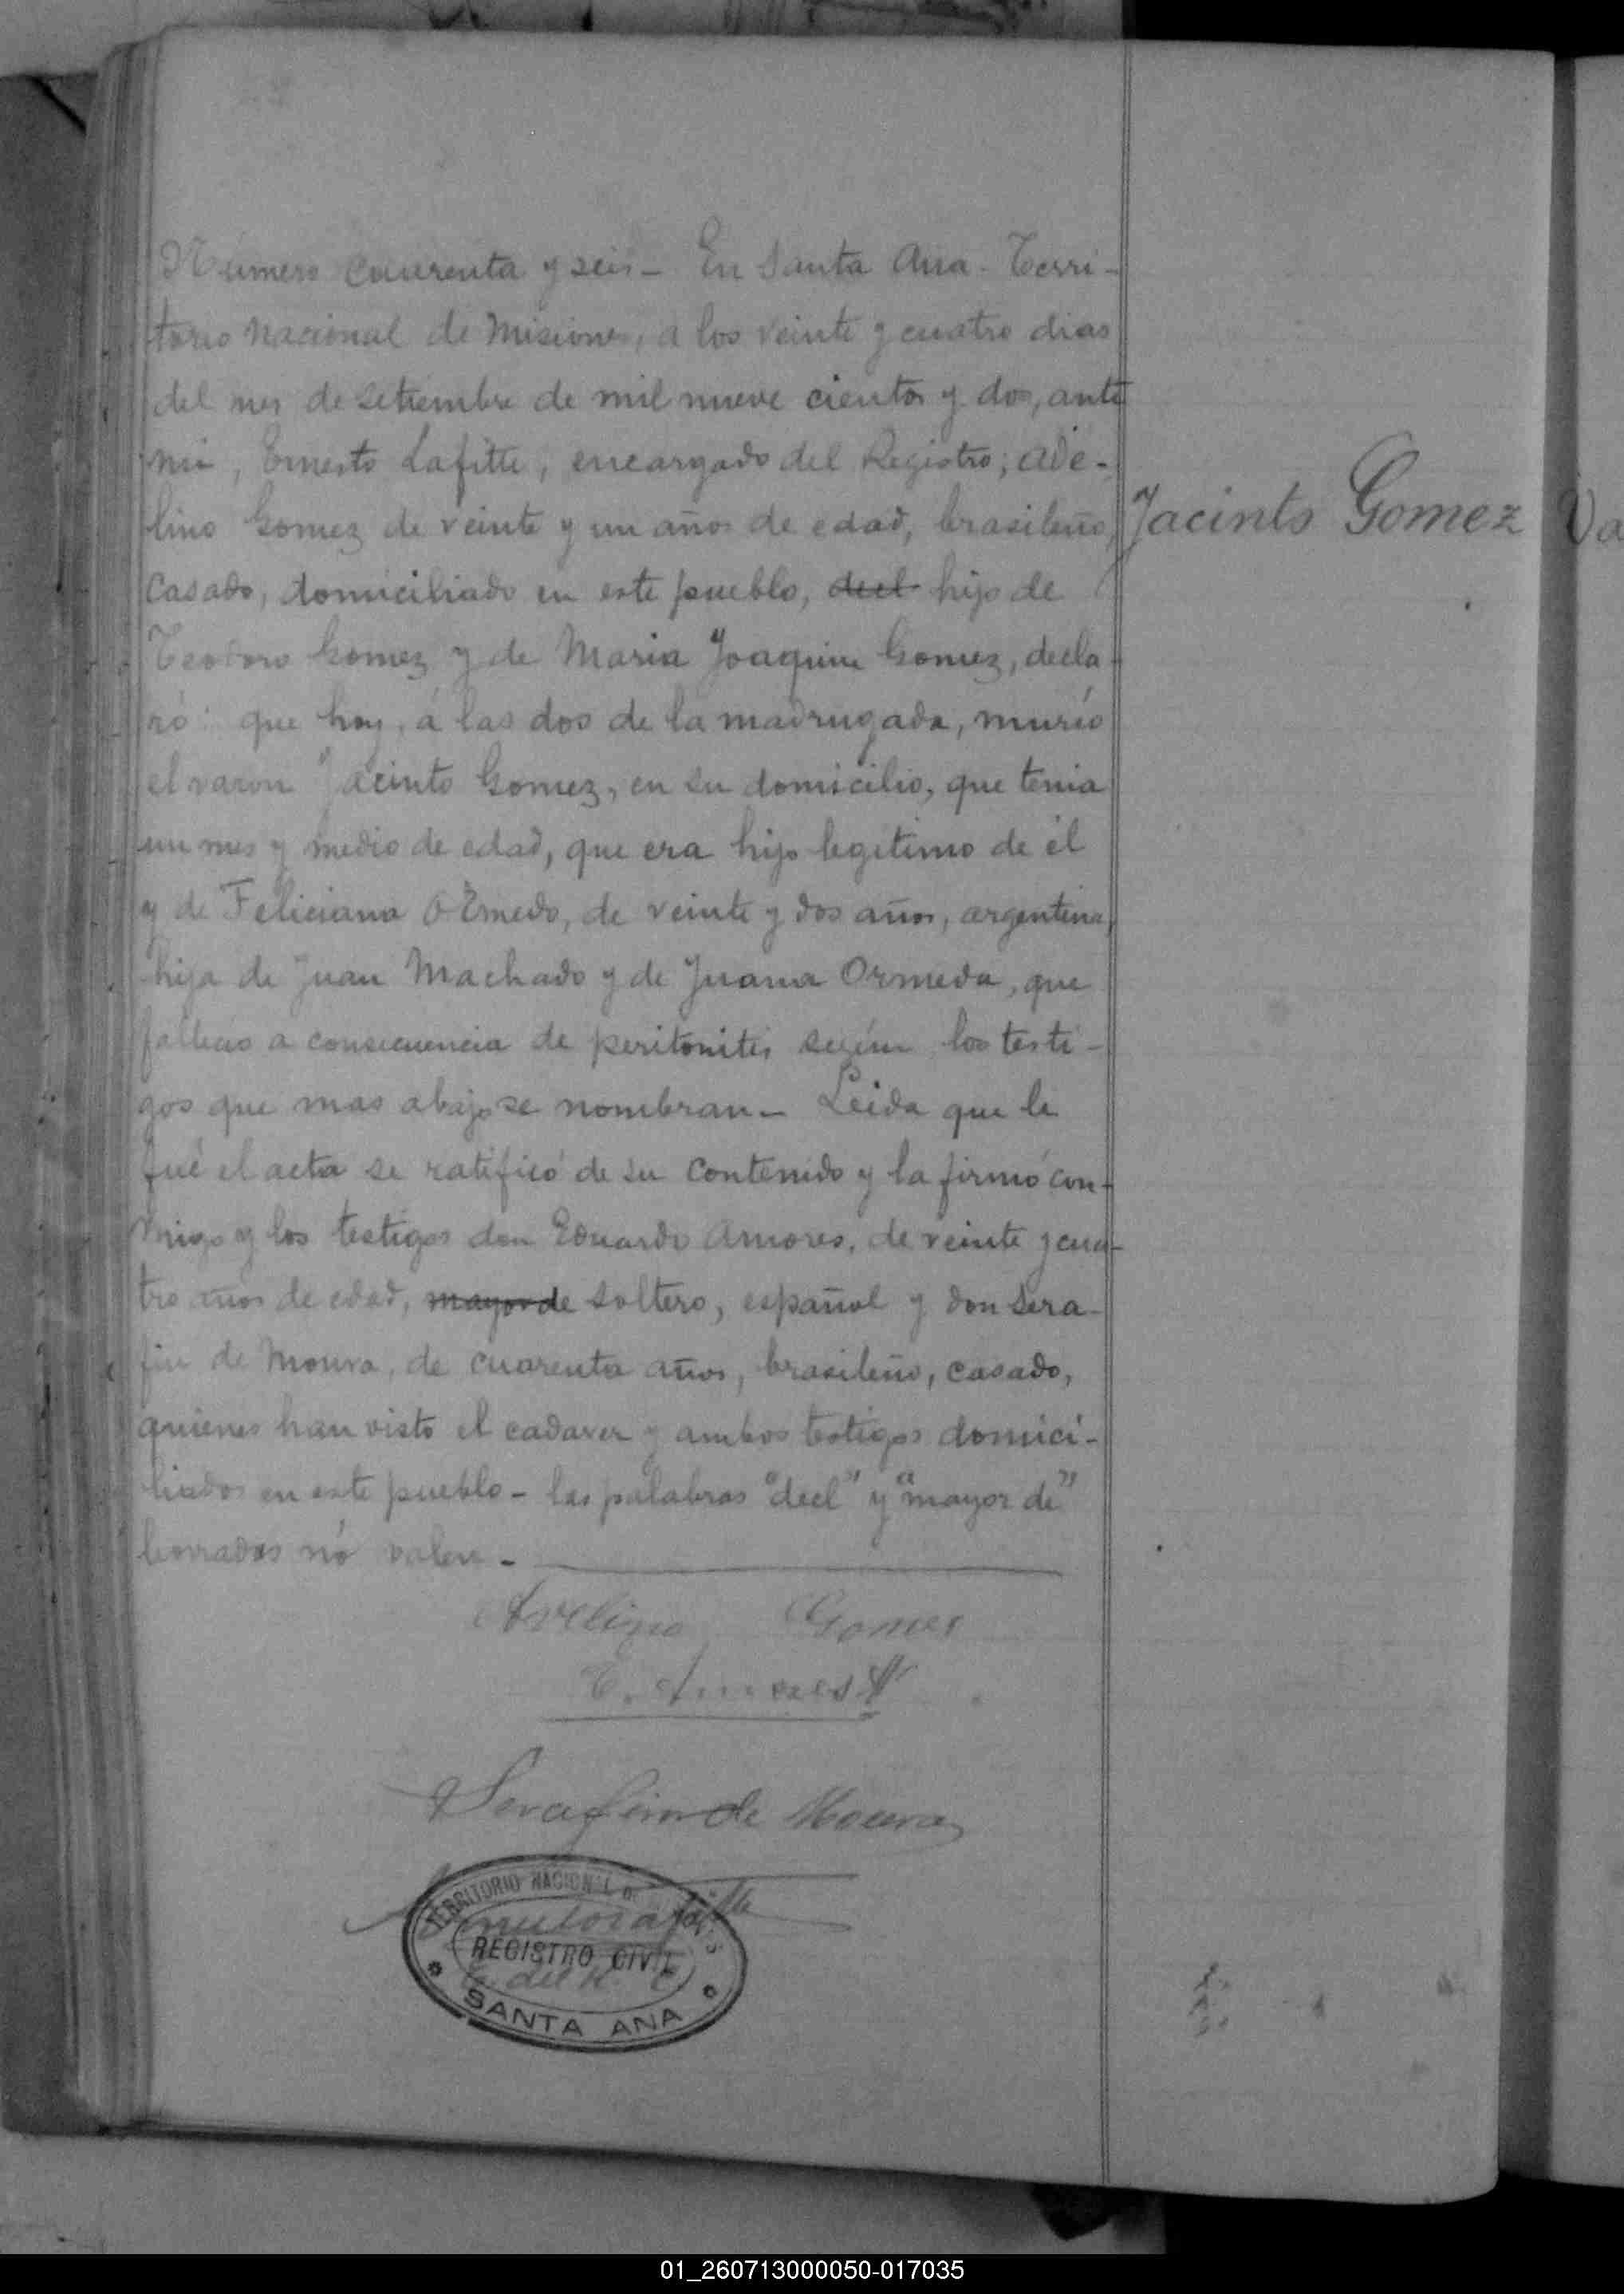 Número cuarenta y seis - En Santa Ana - Terri-
torio Nacional de Misiones, a los veinte y cuatro dias
del mes de setiembre de mil nueve cientos y dos, ante
mi, Ernesto Lafitte, encargado del Registro; Ade-
lino Gomez de veinte y un años de edad, brasileño,
casado, domiciliado en este pueblo, decl hijo de
Teodoro Gomez y de Maria Joaquina Gomez, decla-
ró: que hoy, á las dos de la madrugada, murió
el varon Jacinto Gomez, en su domicilio, que tenia
un mes y medio de edad, que era hijo legitimo de él
y de Feliciana Olmedo, de veinte y dos años, argentina,
hija de Juan Machado y de Juana Ormeda, que
falleció a consecuencia de peritonitis según los testi-
gos que mas abajo se nombran - Leida que le
fué el acta se ratificó de su contenido y la firmó con-
migo y los testigos don Eduardo Amores, de veinte y cua-
tro años de edad, mayor de soltero, español y don Sera-
fin de Moura, de cuarenta años, brasileño, casado,
quienes han visto el cadaver y ambos testigos domici-
liados en este pueblo - las palabras "decl" y "mayor de"
borradas nó valen -
Jacinto Gomez
Va
Avelino Gomes
E. Amores
Serafim de Moura
TERRITORIO NACIONAL
REGISTRO CIVIL
E. del R. C.
SANTA ANA
01_260713000050-017035